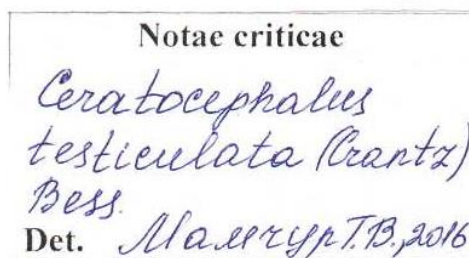 Notae criticae
Ceratocephalus
testiculata (Crantz)
Bess.
Det. Мамчур Т.В., 2016